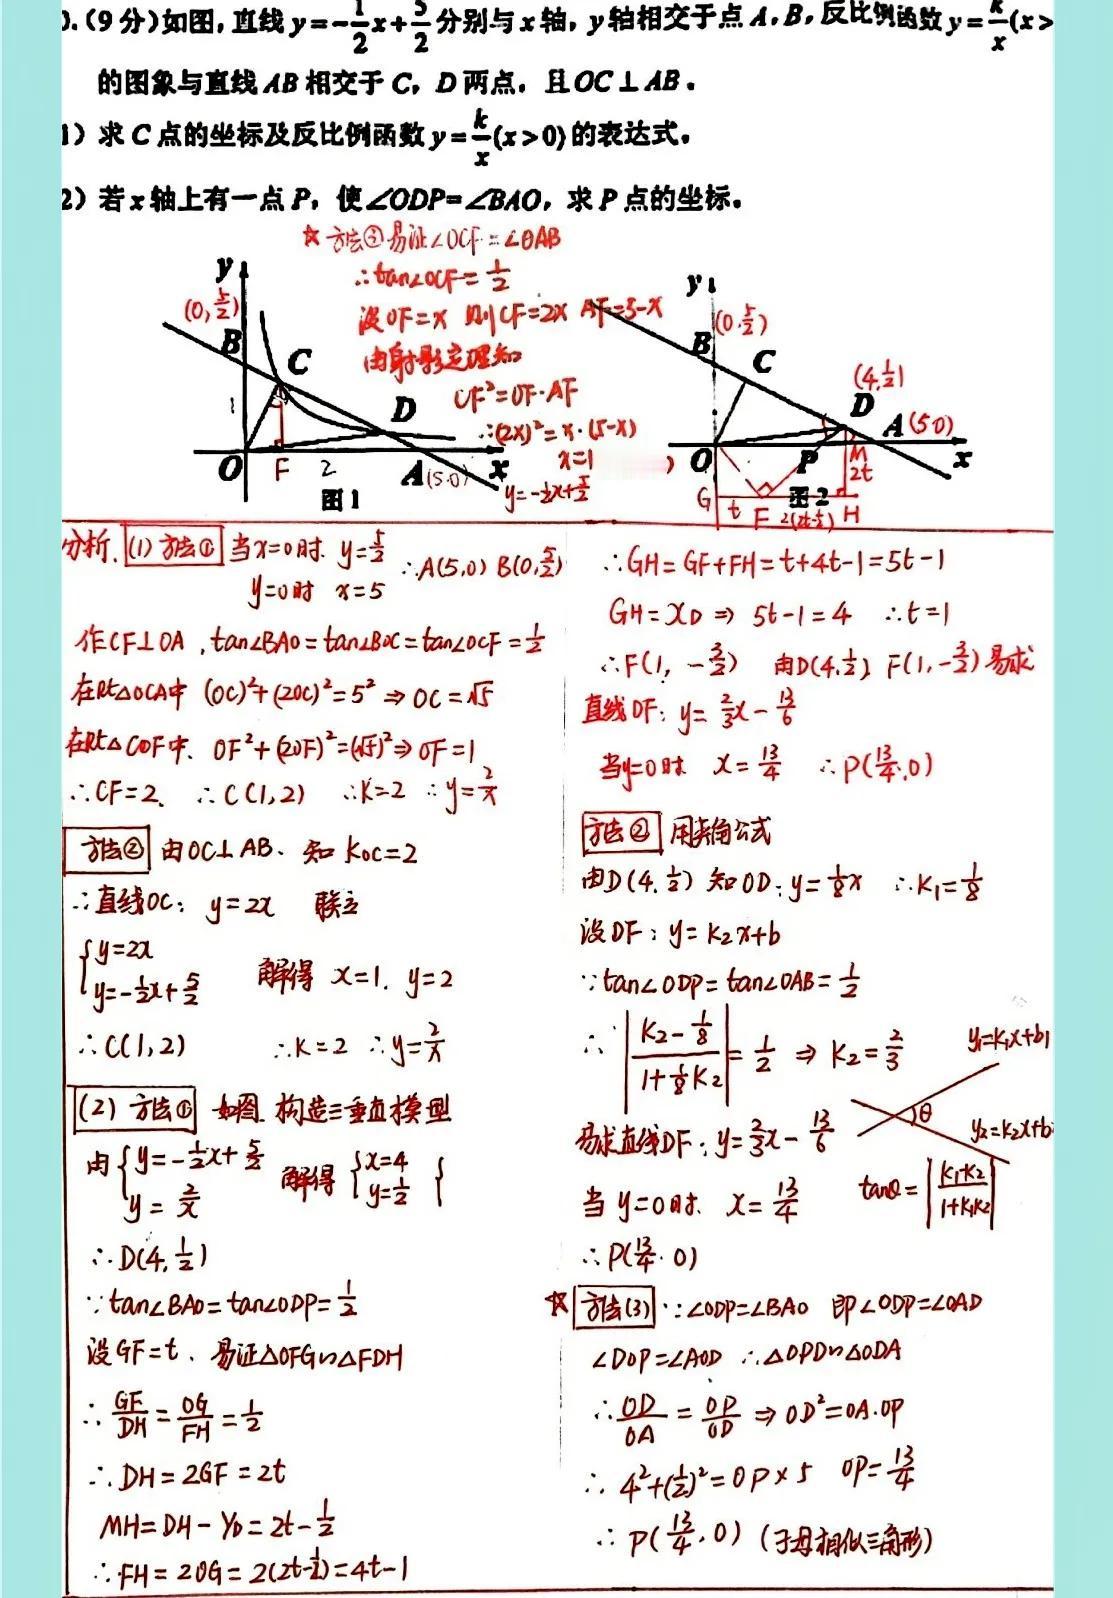 0.(9分)如图,直线y=-1/2x+5/2分别与x轴,y轴相交于点A,B,反比例函数y=k/x(x>
的图象与直线AB相交于C,D两点,且OC⊥AB.
1)求C点的坐标及反比例函数y=k/x(x>0)的表达式。
2)若x轴上有一点P,使∠ODP=∠BAO,求P点的坐标。
☆方法③易证∠OCF=∠OAB
∴tan∠OCF=1/2
设OF=x 则CF=2x AF=5-x
由射影定理知
CF²=OF·AF
∴(2x)²=x·(5-x)
x=1
y=-1/2x+5/2
y
(0,5/2)
B
C
D
O
F
2
A(5.0)
x
图1
y
(0.5/2)
B
C
(4,1/2)
D
A(5.0)
O
P
M
x
2t
G
t
F
2(2t-1/2)
H
图2
分析.(1)方法① 当x=0时.y=5/2
y=0时 x=5
∴A(5,0) B(0,5/2)
作CF⊥OA,tan∠BAO=tan∠BOC=tan∠OCF=1/2
在Rt△OCA中 (OC)²+(2OC)²=5²⇒OC=√5
在Rt△COF中.OF²+(2OF)²=(√5)²⇒OF=1
∴CF=2. ∴C(1,2) ∴k=2 ∴y=2/x
方法② 由OC⊥AB.知KOC=2
∴直线OC:y=2x 联立
{y=2x
y=-1/2x+5/2 解得 x=1.y=2
∴C(1,2) ∴k=2 ∴y=2/x
(2)方法① 如图.构造三垂直模型
由{y=-1/2x+5/2
y=2/x 解得{x=4
y=1/2 {
∴D(4,1/2)
∵tan∠BAO=tan∠ODP=1/2
设GF=t.易证△OFG∽△FDH
∴GF/DH=OG/FH=1/2
∴DH=2GF=2t
MH=DH-YD=2t-1/2
∴FH=2OG=2(2t-1/2)=4t-1
∴GH=GF+FH=t+4t-1=5t-1
GH=XD⇒5t-1=4 ∴t=1
∴F(1,-3/2) 由D(4,1/2) F(1,-3/2)易求
直线DF:y=2/3x-13/6
当y=0时 x=13/4 ∴P(13/4,0)
方法② 用夹角公式
由D(4.1/2)知OD:y=1/8x ∴K1=1/8
设DF:y=K2x+b
∵tan∠ODP=tan∠OAB=1/2
∴|K2-1/8/1+1/8K2|=1/2⇒K2=2/3
y1=K1x+b1
θ
y2=K2x+b
tanθ=|K1-K2/1+K1K2|
易求直线DF:y=2/3x-13/6
当y=0时.x=13/4
∴P(13/4.0)
☆方法(3)∵∠ODP=∠BAO 即∠ODP=∠OAD
∠DOP=∠AOD ∴△OPD∽△ODA
∴OD/OA=OP/OD⇒OD²=OA·OP
∴4²+(1/2)²=OP×5 OP=13/4
∴P(13/4,0)(子母相似三角形)